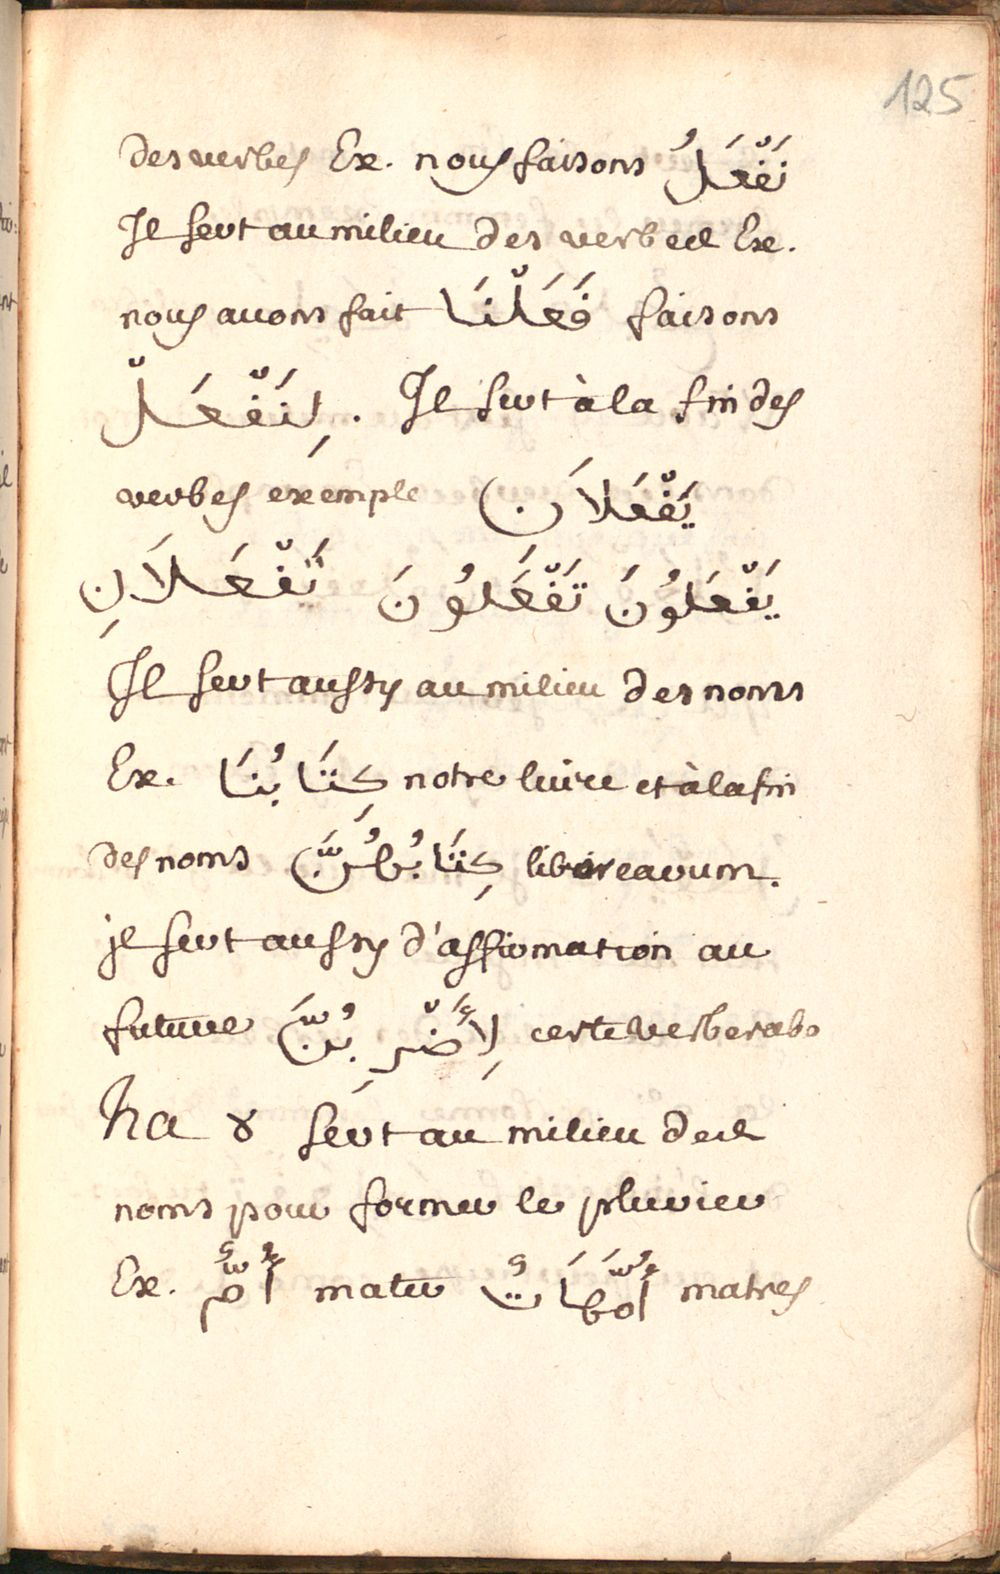 125
des verbes Ex. nous faisons نَفْعَلُ
Il sert au milieu des verbes Ex.
nous auons fait فَعَلْنَا faisons
لِنَفْعَلْ . Il sert à la fin des
verbes exemple يَفْعَلَانِ
يَفْعَلُونَ تَفْعَلُونَ تَفْعَلَانِ
Il sert aussy au milieu des noms
Ex. كِتَابُنَا notre liure et à la fin
des noms كِتَابُهُنَّ liber earum.
jl sert aussy d'affirmation au
future لِأَضْرِبُنَّ certe verberabo
ha ه sert au milieu des
noms pour former le plurier
Ex. أُمٌّ mater أُمَّهَاتٌ matres